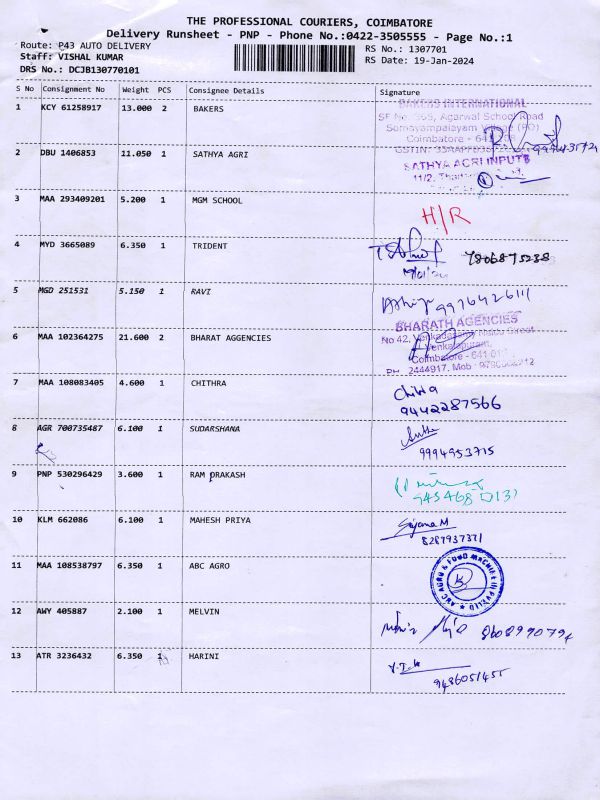 THE PROFESSIONAL COURIERS, COIMBATORE
Delivery Runsheet - PNP - Phone No.:0422-3505555 - Page No.:1
Route: P43 AUTO DELIVERY
RS No.: 1307701
Staff: VISHAL KUMAR
RS Date: 19-Jan-2024
DRS No.: DCJB130770101
S No Consignment No Weight PCS Consignee Details Signature
1 KCY 61258917 13.000 2 BAKERS
BAKERS INTERNATIONAL
SF No. 365, Agarwal School Road
Somayampalayam Village (PO)
Coimbatore
2 DBU 1406853 11.050 1 SATHYA AGRI
SATHYA AGRI INPUTS
11/2,
3 MAA 293409201 5.200 1 MGM SCHOOL
H/R
4 MYD 3665089 6.350 1 TRIDENT
7806875238
5 MGD 251531 5.150 1 RAVI
9976426111
6 MAA 102364275 21.600 2 BHARAT AGGENCIES
BHARATH AGENCIES
No 42, Venkadasamy Naidu Street
Venkatapuram,
Coimbatore - 641
PH : 2444917, Mob :
7 MAA 108083405 4.600 1 CHITHRA
Chitra
9442287566
8 AGR 700735487 6.100 1 SUDARSHANA
9994953715
9 PNP 530296429 3.600 1 RAM PRAKASH
10 KLM 662086 6.100 1 MAHESH PRIYA
Sujana M
8287937371
11 MAA 108538797 6.350 1 ABC AGRO
ABC AGRO & FOOD MACHINE IN PVT LTD
12 AWY 405887 2.100 1 MELVIN
8608990794
13 ATR 3236432 6.350 1 HARINI
9486051455